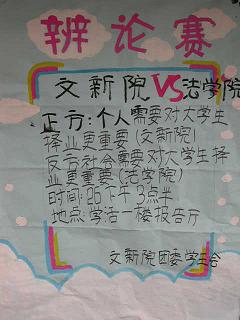 辨论赛
文新院VS法学院
正方:个人需要对大学生
择业更重要(文新院)
反方社会需要对大学生择
业更重要(法学院)
时间:26下午3点半
地点:学活一楼报告厅
文新院团委学生会